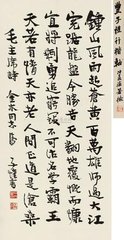 豐子愷行楷軸
鍾山風雨起蒼黃百萬雄師過大江
虎踞龍盤今勝昔天翻地覆慨而慷
宜將剩勇追窮寇不可沽名學霸王
天若有情天亦老人間正道是滄桑
毛主席詩 余本同志屬 子愷書